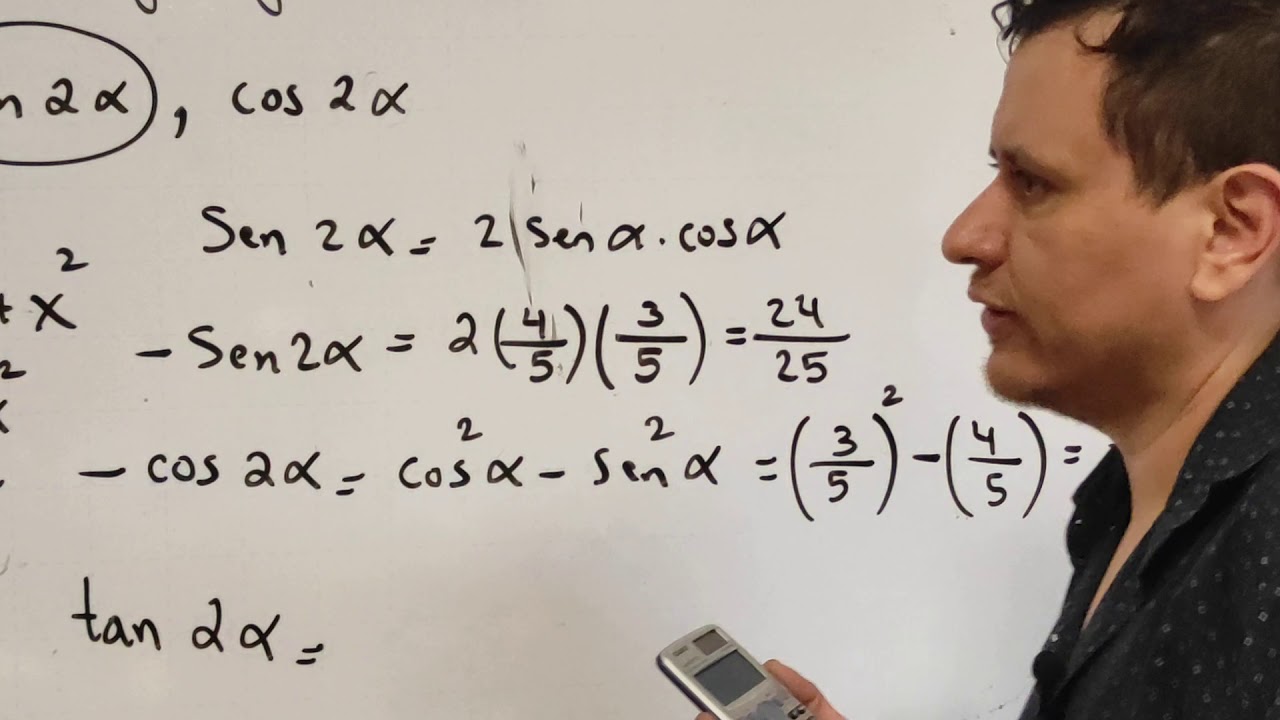 2α), cos 2α
Sen 2α = 2 sen α . cos α
x²
- Sen 2α = 2(4/5)(3/5) = 24/25
- cos 2α = cos²α - sen²α = (3/5)² - (4/5) =
tan 2α =